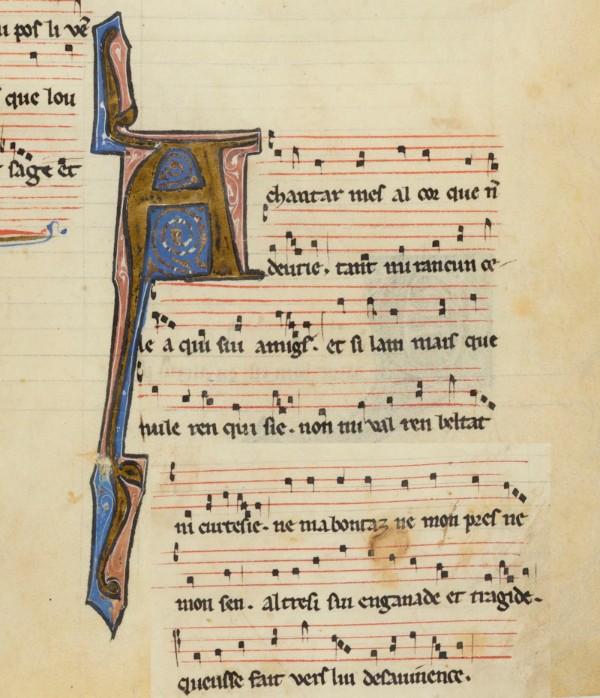 pos li vē
que lou
sage et
A chantar mes al cor que n̄
deurie. tant mi rancun ce-
le a qui sui amigs. et si lam mais que
nule ren qui sie. non mi val ren beltat
ni curtesie. ne ma bontaz ne mon pres ne
mon sen. altresi sui enganade et tragide.
queusse fait vers lui desauinence.